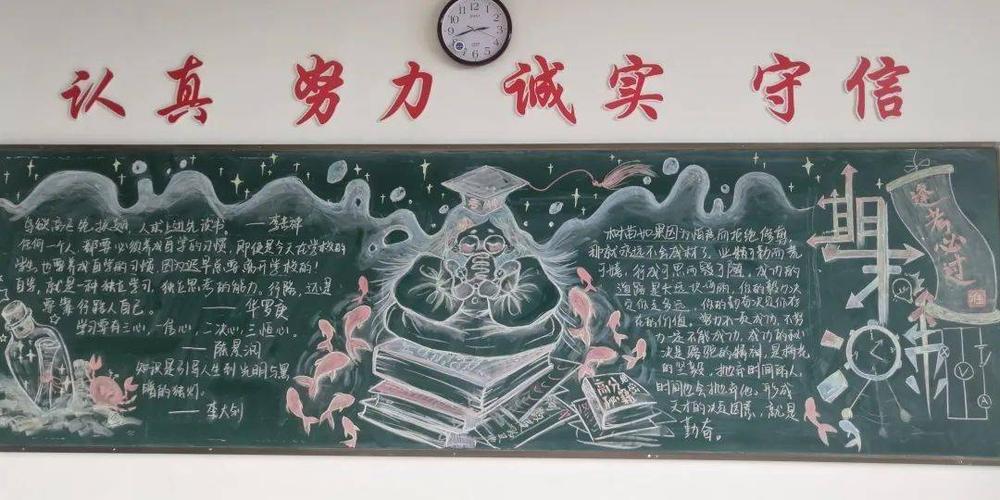 认真 努力 诚实 守信
鸟欲高飞先振翅,人求上进先读书。——李苦禅
任何一个人,都要必须养成自学的习惯,即使是今天在学校的
学生,也要养成自学的习惯,因为迟早总要离开学校的!
自学,就是一种独立学习,独立思考的能力。行路,还是
要靠行路人自己。
——华罗庚
学习要有三心,一信心,二决心,三恒心。
——陈景润
知识是引导人生到光明与黑
暗的
——李大钊
高分
树苗如果因为怕痛而拒绝修剪,
那就永远不会成材了。业精于勤而荒
于嬉,行成于思而毁于随,成功的
道路是
定你走多远,你的勤奋决定你存
在的价值,努力不一定成功,不努
力一定不能成功。成功的秘
决是
的
时间也会抛弃他,形成
天才的决定因素,就是
勤奋。
期末
逢考必过
V
A